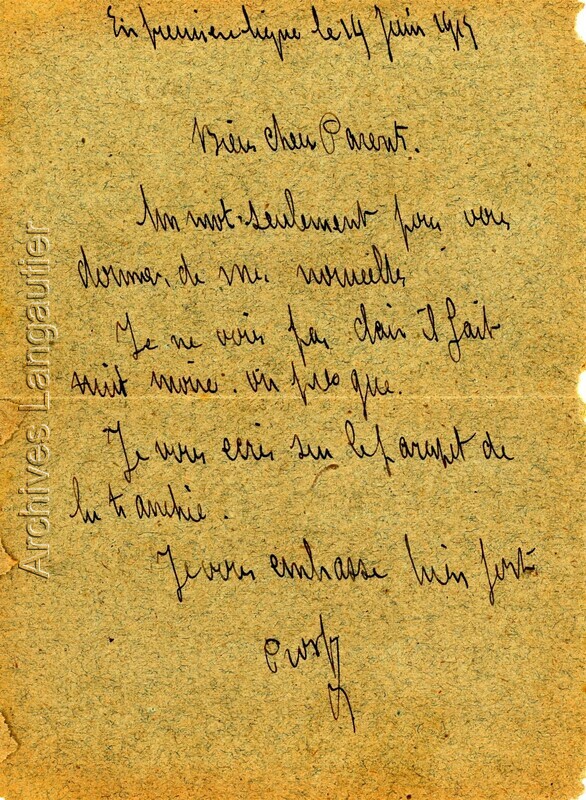 En première ligne le 14 Juin 1915
Bien chers Parents.
Un mot seulement pour vous
donner de mes nouvelles
Je ne vois pas clair il fait
nuit noire. ou presque.
Je vous ecris sur le parapet de
la tranchée.
Je vous embrasse bien fort
Archives Langautier